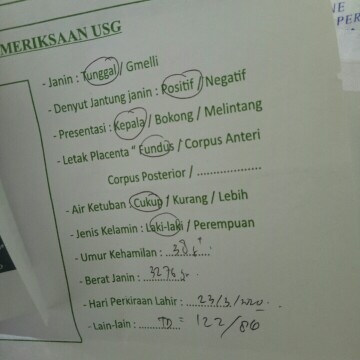 MERIKSAAN USG
- Janin : Tunggal / Gmelli
- Denyut Jantung janin : Positif / Negatif
- Presentasi : Kepala / Bokong / Melintang
- Letak Placenta " Fundus / Corpus Anteri
Corpus Posterior / ....................
- Air Ketuban : Cukup / Kurang / Lebih
- Jenis Kelamin : Laki-laki / Perempuan
- Umur Kehamilan : 38
- Berat Janin : 3276 gr.
- Hari Perkiraan Lahir : 23/3/2020.
- Lain-lain : TD = 122/86
NE
PER